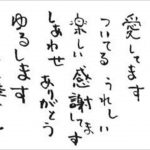 愛してます
ついてる うれしい
楽しい 感謝してます
しあわせ ありがとう
ゆるします